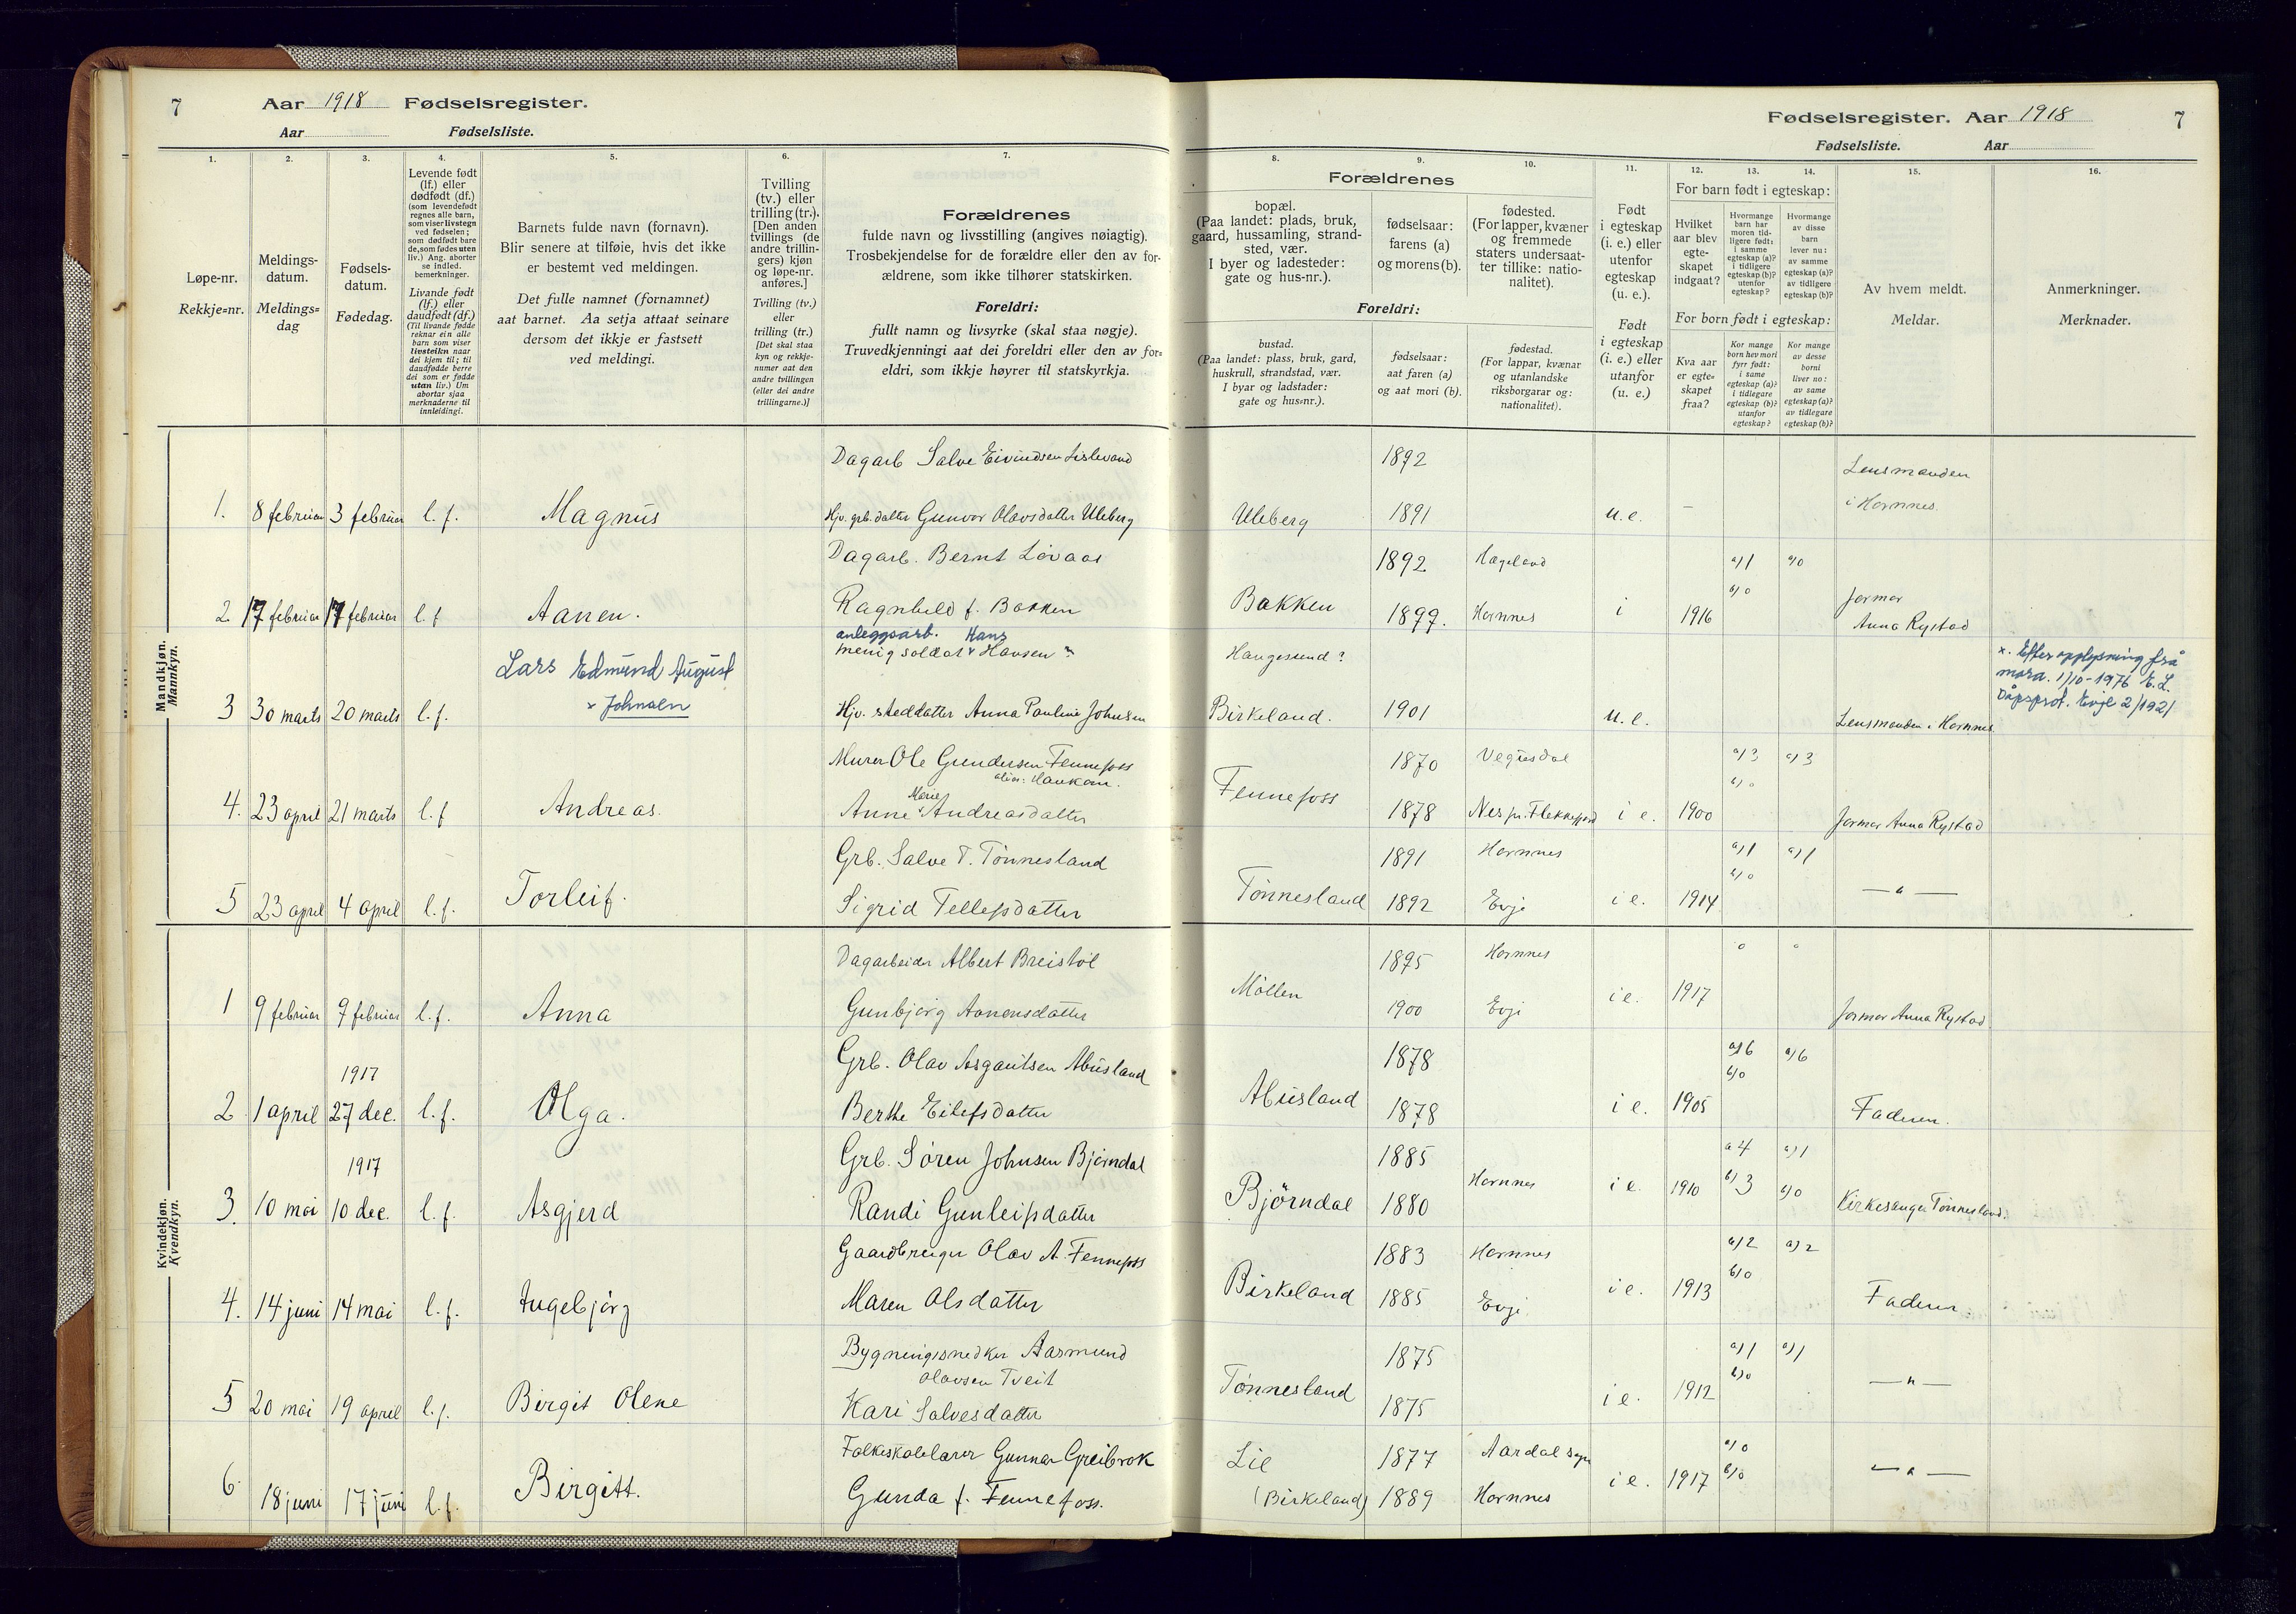 7
Aar 1918 Fødselsregister.
Aar Fødselsliste.
1.
Løpe-nr.
Rekkje-nr.
2.
Meldings-
datum.
Meldings-
dag
3.
Fødsels-
datum.
Fødedag.
4.
Levende født
(lf.) eller
dødfødt (df.)
(som levendefødt
regnes alle barn,
som viser livstegn
ved fødselen;
som dødfødt bare
de, som fødes uten
liv.) Ang. aborter
se indled.
bemerkninger.
Livande født
(lf.) eller
daudfødt (df.)
(Til livande fødde
reknar ein alle
barn som viser
livsteikn naar
dei kjem til; til
daudfødde berre
dei som er fødde
utan liv.) Um
abortar sjaa
merknaderne til
innleidingi.
5.
Barnets fulde navn (fornavn).
Blir senere at tilføie, hvis det ikke
er bestemt ved meldingen.
Det fulle namnet (fornamnet)
aat barnet. Aa setja attaat seinare
dersom det ikkje er fastsett
ved meldingi.
6.
Tvilling
(tv.) eller
trilling (tr.).
[Den anden
tvillings (de
andre trillin-
gers) kjøn
og løpe-nr.
anføres.]
Tvilling (tv.)
eller
trilling (tr.)
[Det skal staa
kyn og rekkje-
numer aat den
andre tvillingen
(eller dei andre
trillingarne.)]
7.
Forældrenes
fulde navn og livsstilling (angives nøiagtig).
Trosbekjendelse for de forældre eller den av for-
ældrene, som ikke tilhører statskirken.
Foreldri:
fullt namn og livsyrke (skal staa nøgje).
Truvedkjenningi aat dei foreldri eller den av for-
eldri, som ikkje høyrer til statskyrkja.
Mandkjøn.
Mannkyn.
Dagarb Salve Eivindsen Lislevand
1. 8 februar 3 februar l. f. Magnus Hjv. grb. datter Gunvor Olavsdatter Uleberg
Dagarb. Bernt Løvaas
2. 17 februar 17 februar l. f Aanen. Ragnhild f. Bakken
anleggsarb. Hans
Lars Edmund August menig soldat Hansen ?
x Johnsen
3 30 marts 20 marts l. f. Hjv. steddatter Anna Pauline Johnsen
Murer Ole Gundersen Fennefoss
alias: Haukom.
Marie
4. 23 april 21 marts l. f Andreas. Anne Andreasdatter
Grb. Salve T. Tønnesland
5 23 april 4 april l. f. Torleif. Sigrid Tellefsdatter
Kvindekjøn.
Kvendkyn.
Dagarbeider Albert Breistøl
1 9 februar 9 februar l. f. Anna Gunbjørg Aanensdatter
1917 Grb. Olav Asgautsen Abusland
2 1 april 27 dec. l. f. Olga. Berthe Eilefsdatter
1917 Grb. Søren Johnsen Bjørndal
3. 10 mai 10 dec. l. f. Asgjerd Randi Gunleifsdatter
Gaardbruger Olav A. Fennefoss
4. 14 juni 14 mai l. f. Ingebjørg Maren Olsdatter
Bygningssnedker Aasmund
Olavsen Tveit
5 20 mai 19 april l. f. Birgit Olene Kari Salvesdatter
Folkeskolelærer Gunnar Greibrok
6. 18 juni 17 juni l. f. Birgitt. Gunda f. Fennefoss.
Fødselsregister. Aar 1918 7
Fødselsliste. Aar
8.
Forældrenes
bopæl.
(Paa landet: plads, bruk,
gaard, hussamling, strand-
sted, vær.
I byer og ladesteder:
gate og hus-nr.).
Foreldri:
bustad.
(Paa landet: plass, bruk, gard,
huskrull, strandstad, vær.
I byar og ladstader:
gate og hus-nr.).
9.
fødselsaar:
farens (a)
og morens (b).
fødselsaar:
aat faren (a)
og aat mori (b).
10.
fødested.
(For lapper, kvæner
og fremmede
staters undersaat-
ter tillike: natio-
nalitet).
fødestad.
(For lappar, kvænar
og utanlandske
riksborgarar og:
nationalitet).
11.
Født
i egteskap
(i. e.) eller
utenfor
egteskap
(u. e.).
Født
i egteskap
(i. e.) eller
utanfor
(u. e.)
For barn født i egteskap:
12.
Hvilket
aar blev
egte-
skapet
indgaat?
13.
Hvormange
barn har
moren tid-
ligere født:
i samme
egteskap (a)?
i tidligere
egteskap (b)?
utenfor
egteskap?
14.
Hvormange
av disse
barn
lever nu:
av samme
egteskap (a)?
av tidligere
egteskap (b)?
For born født i egteskap:
Kva aar
er egte-
skapet
fraa?
Kor mange
born hev mori
fyrr født:
i same
egteskap (a)?
i tidlegare
egteskap (b)?
utanfor
egteskap?
Kor mange
av desse
borni
liver no:
av same
egteskap (a)?
av tidlegare
egteskap (b)?
15.
Av hvem meldt.
Meldar.
16.
Anmerkninger.
Merknader.
1892 Lensmanden
Uleberg 1891 u. e. – i Hornnes.
1892 Hægeland a) 1 a) 0
b) 0
Bakken 1899. Hornnes i 1916 Jormor
Anna Rystad
Haugesund ? x. Efter opplysning frå
mora. 1/10-1976 E. L.
Dåpsprot. Evje 2/1921
Birkeland. 1901 u. e. Lensmanden i Hornnes
1870 Vegusdal a) 3 a) 3
b) 0
Fennefoss 1878 Nes pr. Flekkefjord i e. 1900 Jormor Anna Rystad
1891 Hornnes a) 1 a) 1
b) 0
Tønnesland 1892 Evje i e. 1914 — " —
1895 Hornnes 0 0
Møllen 1900 Evje i e. 1917 Jormor Anna Rystad
1878 a) 6 a) 6
b) 0
Abusland 1878 i e. 1905 Faderen.
1885 a 4 a) 1
Bjørndal 1880 Hornnes i e. 1910 b) 3 b) 0 Kirkesanger Tønnesland.
1883 Hornnes a) 2 a) 2
b) 0
Birkeland 1885 Evje i e. 1913 Faderen.
1875 a) 1 a) 1
b) 0
Tønnesland 1875 i e. 1912 — " —
Lie 1877 Aardal sogn a) 0
(Birkeland) 1889 Hornnes i e. 1917 b) 0 — " —